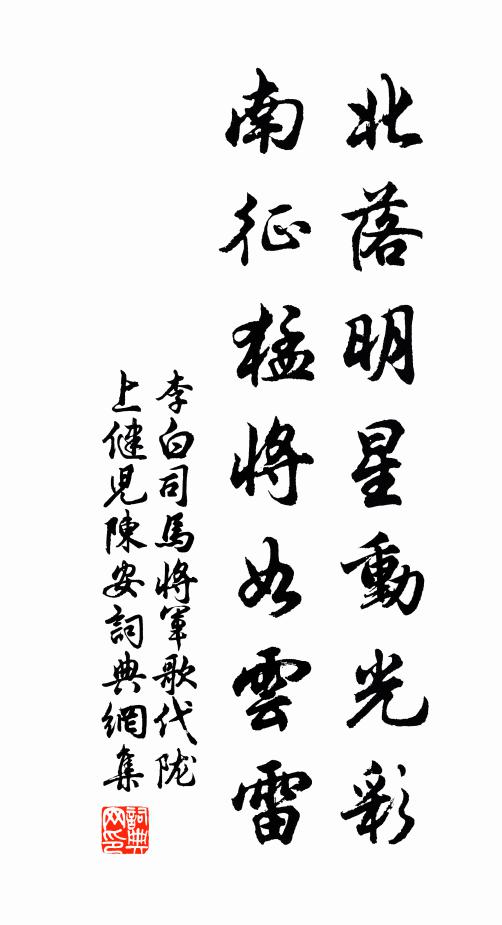 北落明星動光彩
南征猛將如雲雷
李白司馬將軍歌代陇
上健児陳安詞典網集
詞典
网印